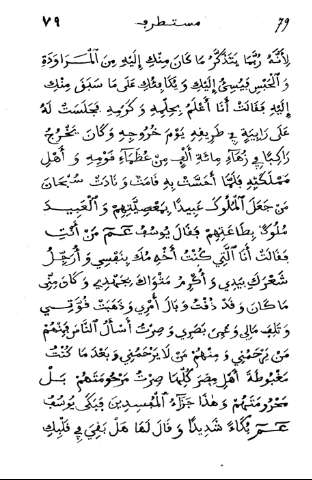 79 مستطرف ٧٩
لِأَنَّهُ رُبَّمَا يَتَذَكَّرُ مَا كَانَ مِنْكِ إِلَيْهِ مِنَ الْمُرَاوَدَةِ
وَ الْحَبْسِ فَيُسِيْءُ إِلَيْكِ وَ يُكَافِئُكِ عَلَى مَا سَبَقَ مِنْكِ
إِلَيْهِ فَقَالَتْ أَنَا أَعْلَمُ بِحِلْمِهِ وَ كَرَمِهِ فَجَلَسَتْ لَهُ
عَلَى رَابِيَةٍ فِي طَرِيقِهِ يَوْمَ خُرُوجِهِ وَ كَانَ يَخْرُجُ
رَاكِبًا فِي زُهَاءِ مِائَةِ أَلْفٍ مِنْ عُظَمَاءِ قَوْمِهِ وَ أَهْلِ
مَمْلَكَتِهِ فَلَمَّا أَحَسَّتْ بِهِ قَامَتْ وَ نَادَتْ سُبْحَانَ
مَنْ جَعَلَ الْمُلُوكَ عَبِيدًا بِمَعْصِيَتِهِمْ وَ الْعَبِيدَ
مُلُوكًا بِطَاعَتِهِمْ فَقَالَ يُوسُفُ عَمْ مَنْ أَنْتِ
فَقَالَتْ أَنَا الَّتِي كُنْتُ أَخْدِمُكَ بِنَفْسِي وَ أُرَجِّلُ
شَعْرَكَ بِيَدِي وَ أُكْرِمُ مَثْوَاكَ بِجَهْدِي وَ كَانَ مِنِّي
مَا كَانَ وَ قَدْ ذُقْتُ وَبَالَ أَمْرِي وَ ذَهَبَتْ قُوَّتِي
وَ تَلِفَ مَالِي وَ عَمِيَ بَصَرِي وَ صِرْتُ أَسْأَلُ النَّاسَ فَمِنْهُمْ
مَنْ يَرْحَمُنِي وَ مِنْهُمْ مَنْ لَا يَرْحَمُنِي وَ بَعْدَ مَا كُنْتُ
مَغْبُوطَةَ أَهْلِ مِصْرَ كُلِّهَا صِرْتُ مَرْحُومَتَهُمْ بَلْ
مَحْرُومَتَهُمْ وَ هٰذَا جَزَاءُ الْمُفْسِدِينَ فَبَكَى يُوسُفُ
عَمْ بُكَاءً شَدِيدًا وَ قَالَ لَهَا هَلْ بَقِيَ فِي قَلْبِكِ